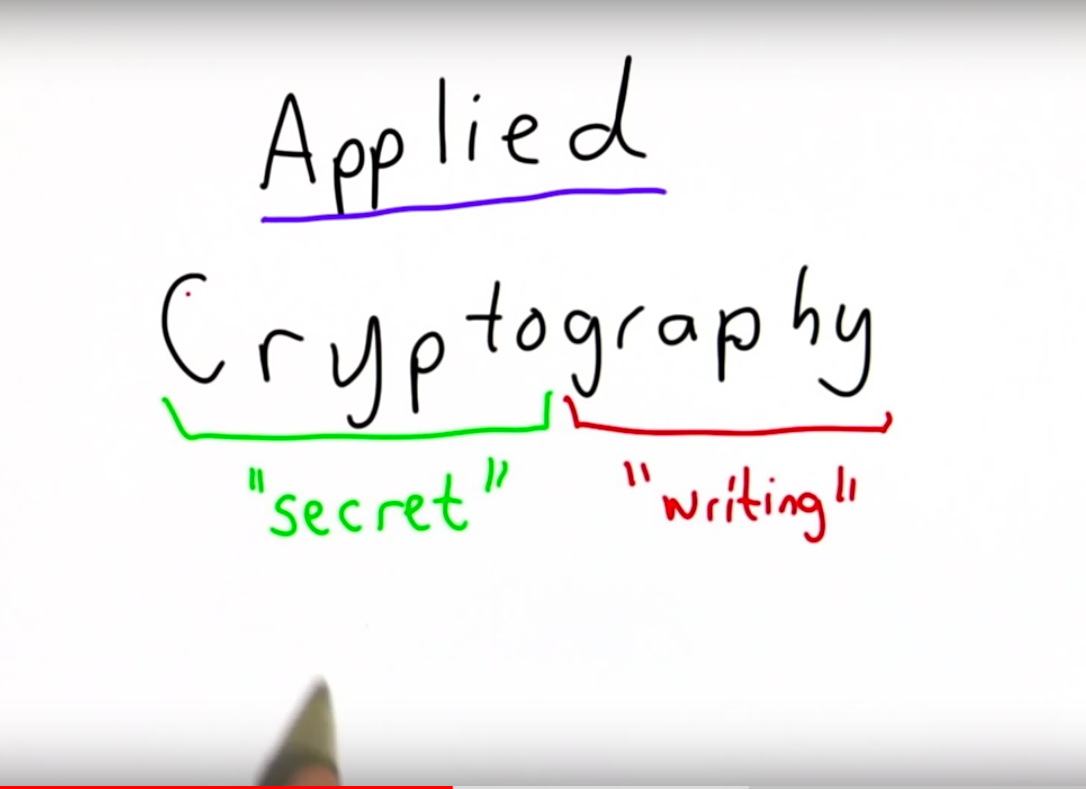 Applied
Cryptography
"secret" "writing"